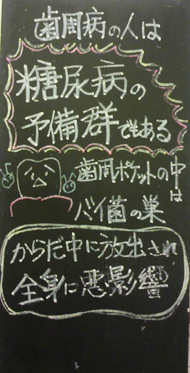 歯周病の人は
糖尿病の
予備群である
歯周ポケットの中は
バイ菌の巣
からだ中に放出され
全身に悪影響